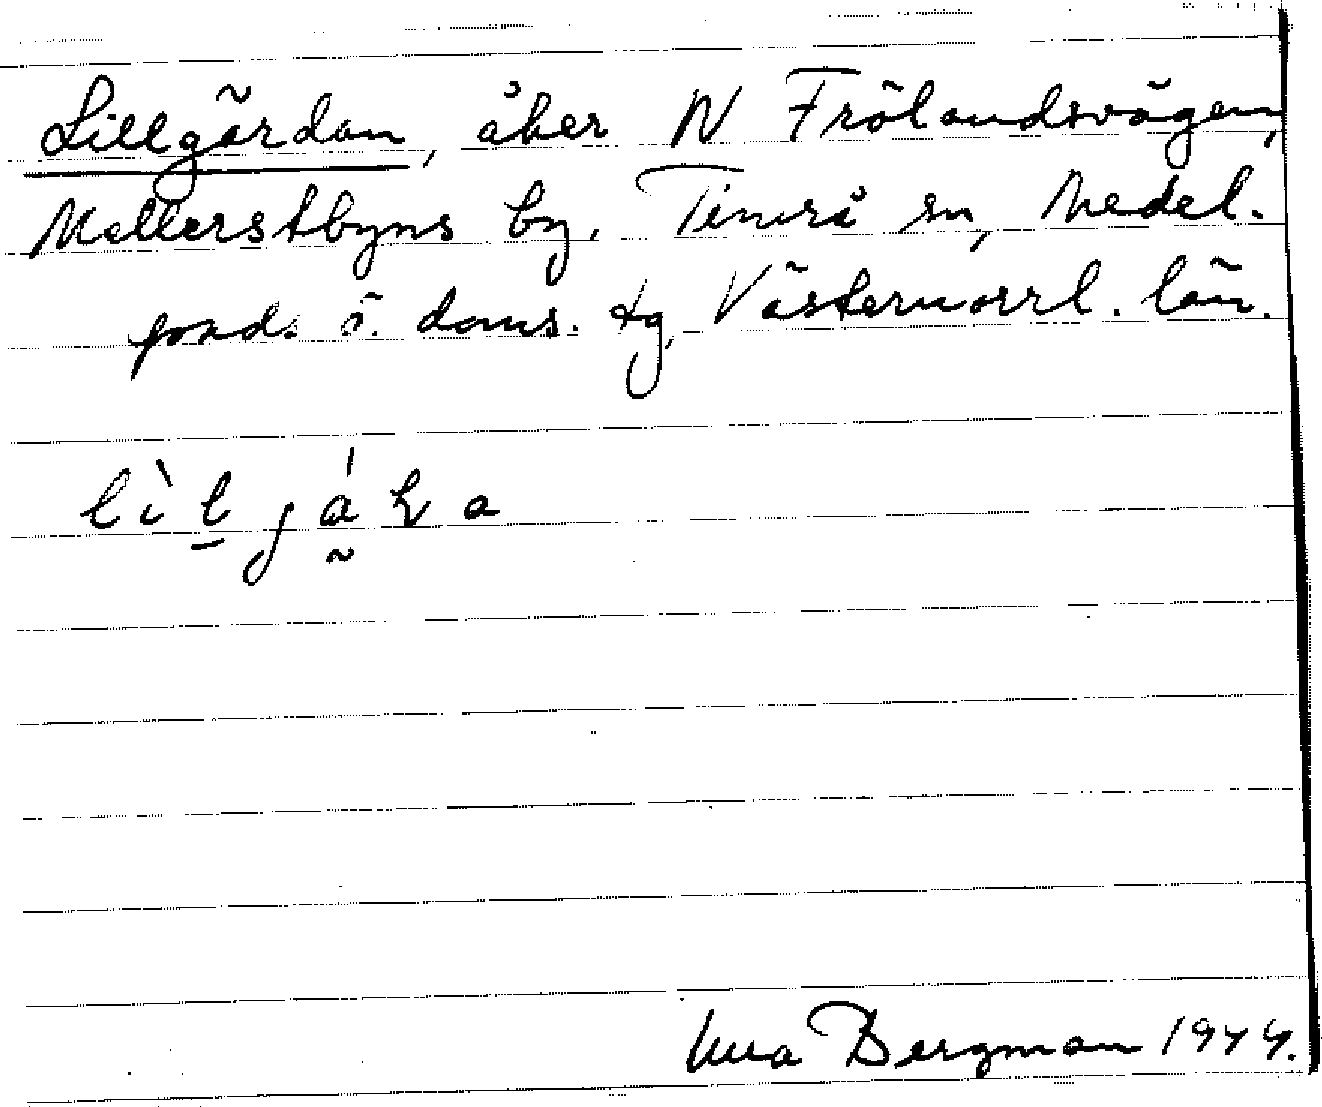 Lillgärdan, åker N Frölandsvägen,
Mellerstbyns by, Timrå sn, Medel-
pads ö. doms. tg, Västernorrl. län.
Bergman 1944.